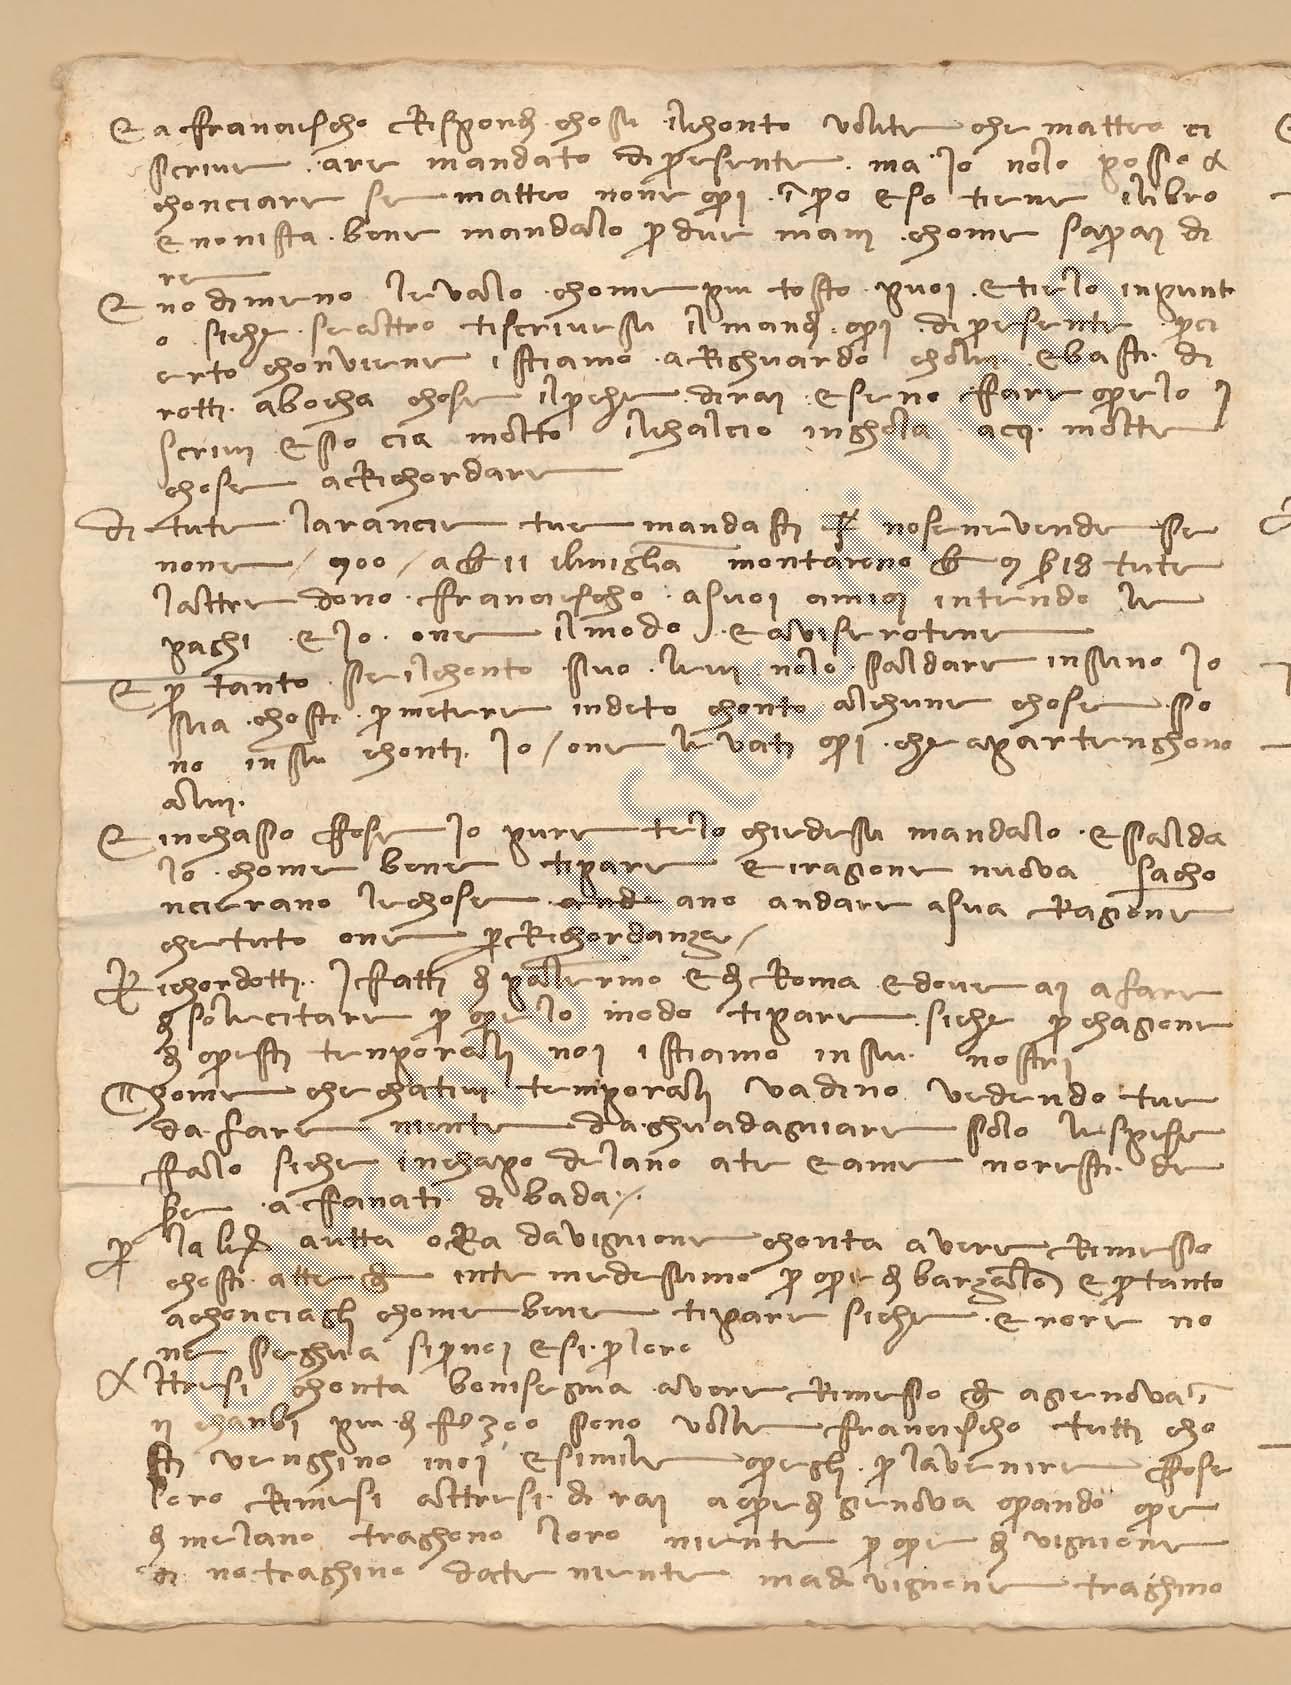 E a Francischo rispondi chosu ilchonto volute che matteo ci
scrive are mandato di presente ma io nolo posso a
chonciare se matteo none qui ip(er)o eso tiene ilibro
e non ista bene mandalo p(er) due mani chome saprai di
re
E nodimeno levalo chome piu tosto puoi e tielo inpunt
o siche se altro tiscrivesu il mandi qui di presente p(er) ci
erto chonviene istiamo a righuardo cholui e basti di
rotti a bocha chose il p(er)che dirai e se no fare quelo i
scrivi e sso cia molto ilchalcio inghola a q molte
chose a richordare
di tute larancie tue mandasti nosenevende se
none / 900 / a 11 ilmigliao montareno 9 18 tute
laltre dono Francischo a suoi amici intendo le
paghi e io one il modo e aviserotene
E p(er) tanto se ilchonto suo levi nolo saldare insino io
sia chosti p(er) metere indeto chonto alchune chose so
no insu chonti io / one levati qui che apartenghono
alui
E inchasso fose io pure telo chiedesu mandalo e salda
lo chome bene ti pare e iragione nuova sacho
ncierano le chose ano andare a sua ragione
che tuto one p(er) richordanza /
Richordotti i fatti di palermo e di Roma e dove ai a fare
di solecitare p(er) quelo modo ti pare siche p(er) chagione
di questi tenporali noi istiamo insu nostri
Chome che chativi temporali vadino vedendo tue
da fare niente da ghuadagniare solo le spese
falo siche inchapo delano a te e a me noresti de
be afanati di bada /
p(er) la autta ora da vignione chonta avere rimesso
chosti altre inte medesimo p(er) que di barzalo(na) e p(er) tanto
achonciagli chome bene ti pare siche erore no
ne seghua si p(er) noi e si p(er) loro
Altresi chonta bonisegnia avere rimesso a gienova i
n chanbi piu di f 300 sono vole Francischo tutti cho
sti venghino inoi e simile quegli p(er) lavenire fose
loro rimesi altresi dirai a que di gienova quando que
di melano traghono loro niente p(er) que di vignione
di no traghino date niente ma di vignone traghino